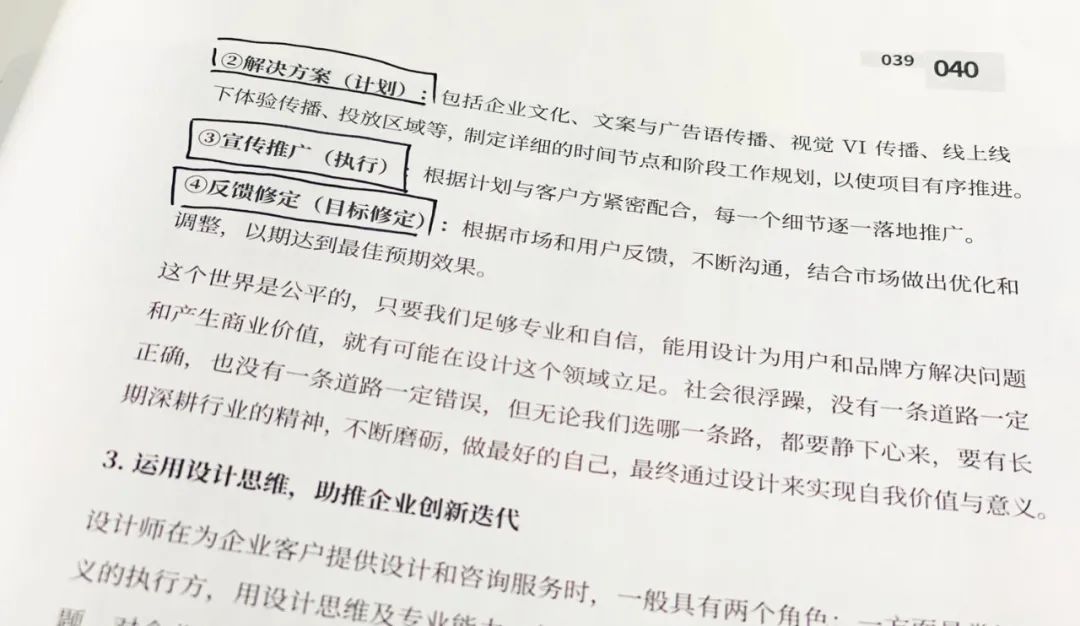 039 040
②解决方案（计划）：包括企业文化、文案与广告语传播、视觉 VI 传播、线上线
下体验传播、投放区域等，制定详细的时间节点和阶段工作规划，以使项目有序推进。
③宣传推广（执行）：根据计划与客户方紧密配合，每一个细节逐一落地推广。
④反馈修定（目标修定）：根据市场和用户反馈，不断沟通，结合市场做出优化和
调整，以期达到最佳预期效果。
这个世界是公平的，只要我们足够专业和自信，能用设计为用户和品牌方解决问题
和产生商业价值，就有可能在设计这个领域立足。社会很浮躁，没有一条道路一定
正确，也没有一条道路一定错误，但无论我们选哪一条路，都要静下心来，要有长
期深耕行业的精神，不断磨砺，做最好的自己，最终通过设计来实现自我价值与意义。
3. 运用设计思维，助推企业创新迭代
设计师在为企业客户提供设计和咨询服务时，一般具有两个角色：一方面是
义的执行方，用设计思维及专业能力
题